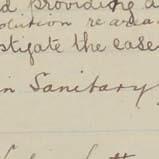 d providing a
olution re area
stigate the case
in Sanitary